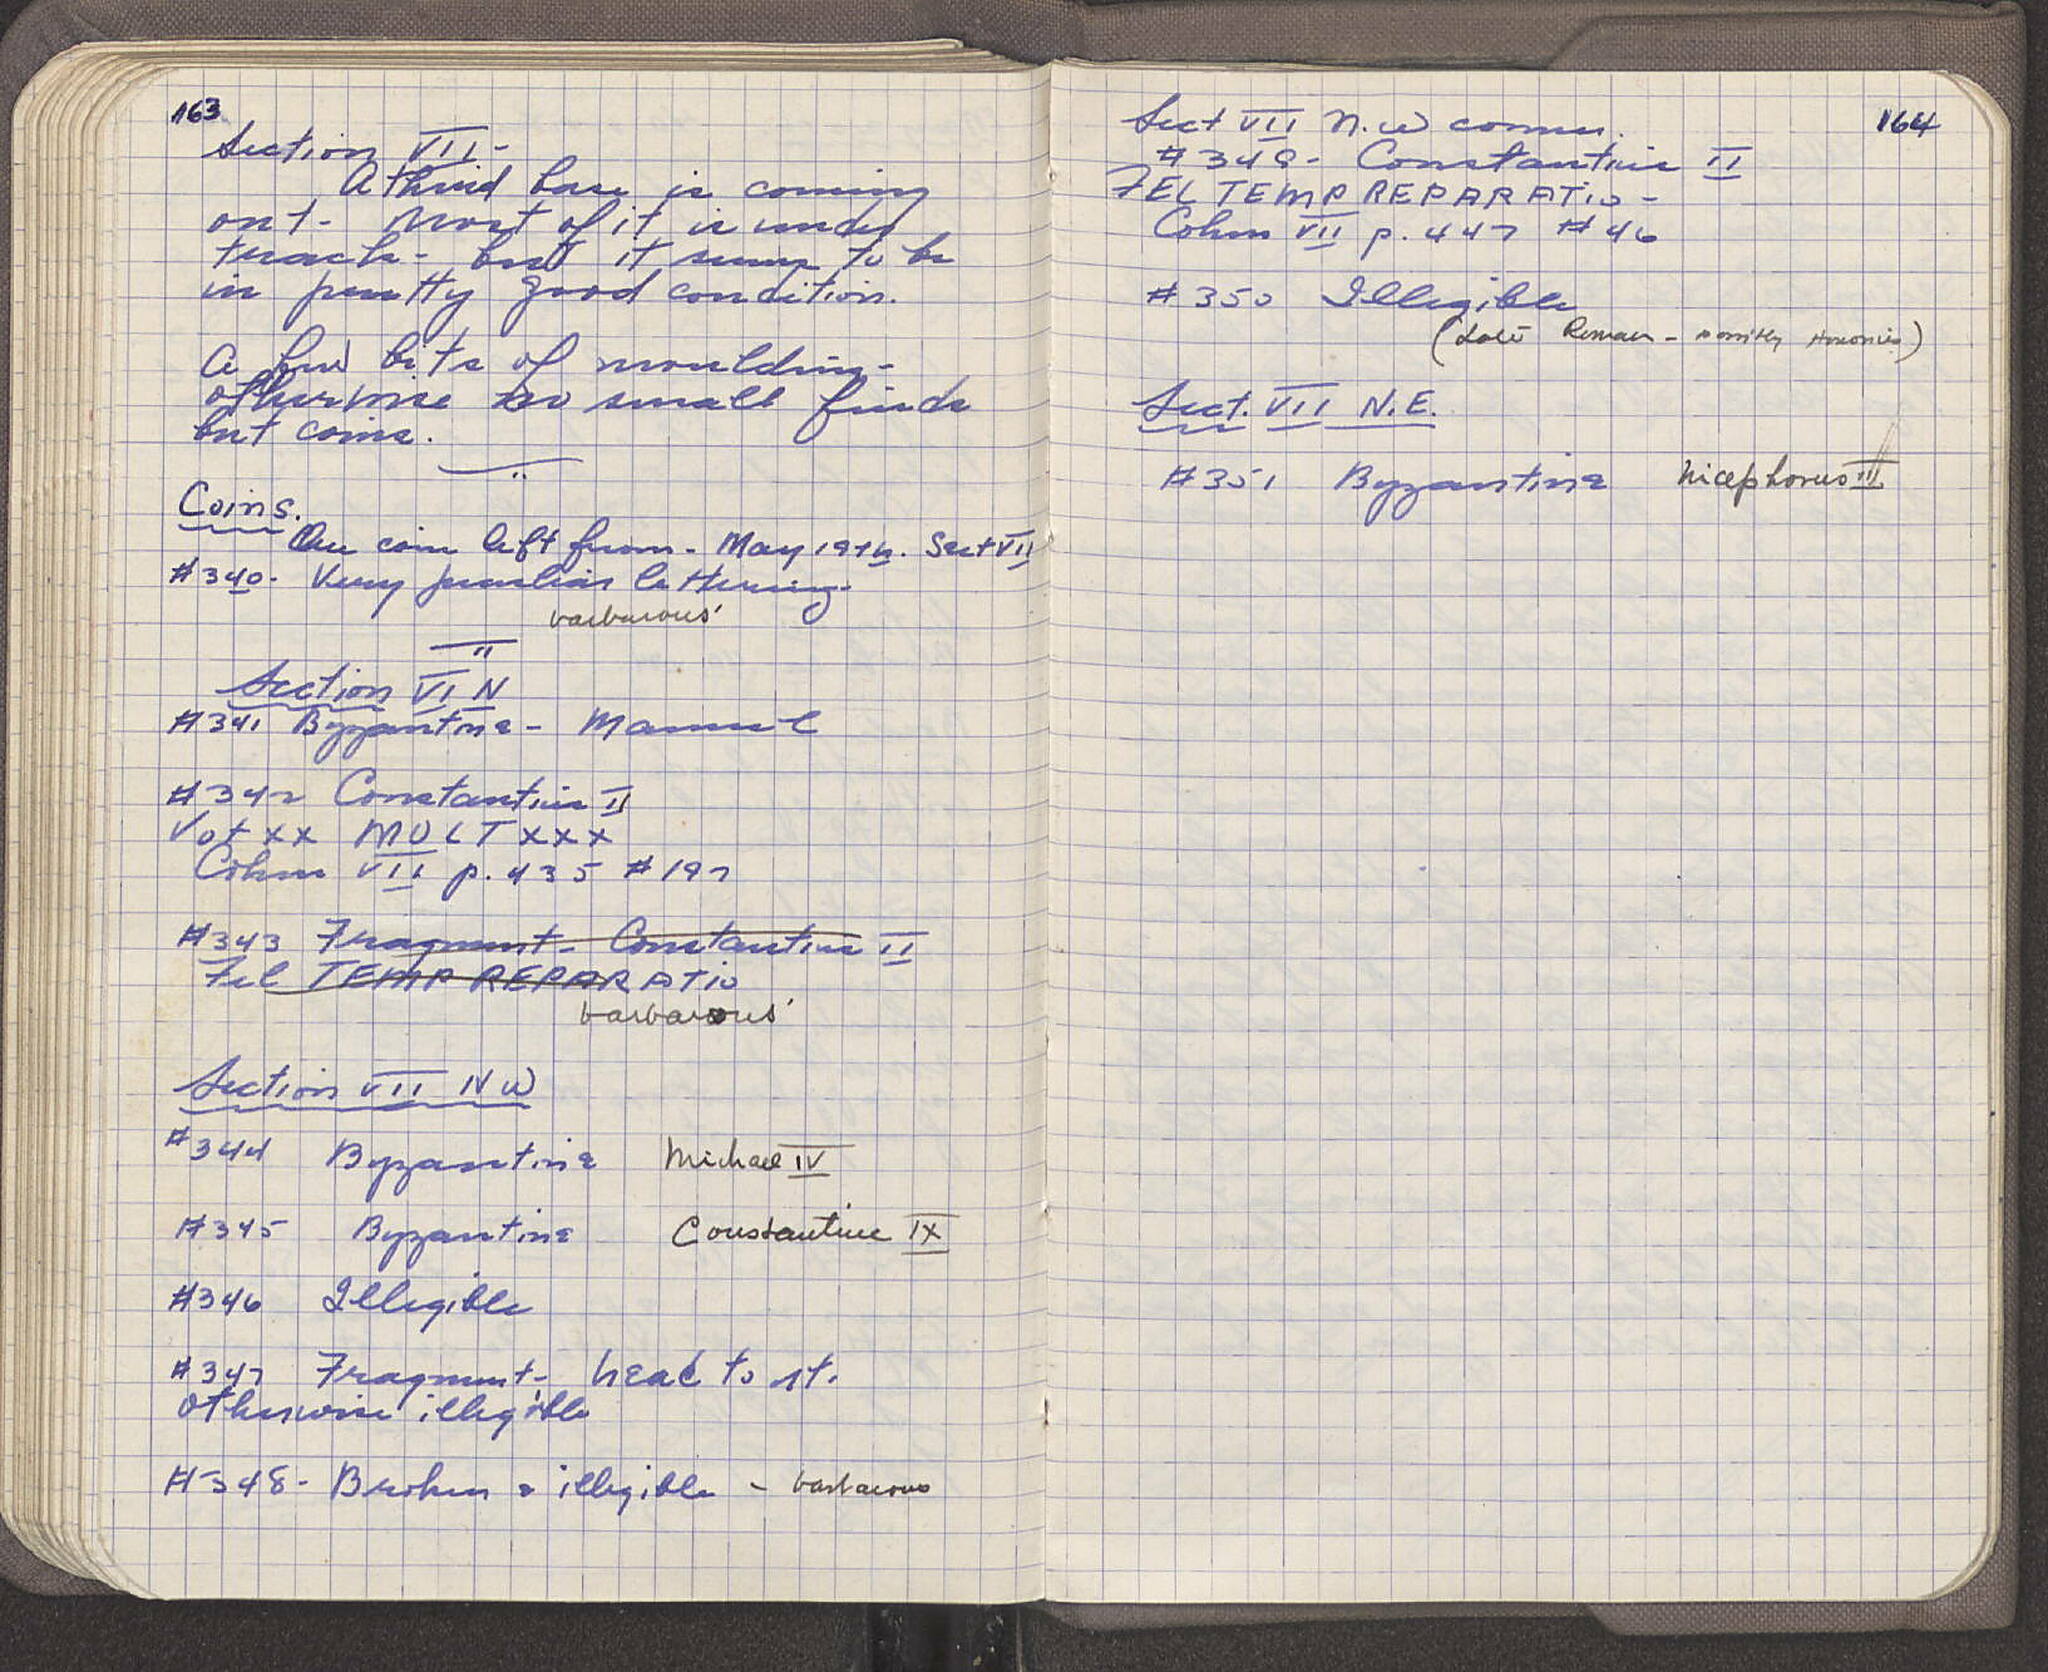 163
Section VII -
A third base is coming
out - Most of it is under
track - but it seems to be
in pretty good condition.
A few bits of moulding -
otherwise no small finds
but coins.
Coins.
One coin left from - May 19th. Sect VII
#340 - Very peculiar lettering -
barbarous
Section VI N
#341 Byzantine - Manuel
#342 Constantius II
Vot xx MULT xxx
Cohen VII p. 435 #197
#343 Fragment - Constantius II
Fel TEMP REPARATIO
barbarous
Section VII NW
#344 Byzantine Michael IV
#345 Byzantine Constantine IX
#346 Illegible
#347 Fragment - head to rt.
otherwise illegible
#348 - Broken & illegible - barbarous
164
Sect VII N.W corner.
#349 - Constantius II
FEL TEMP REPARATIO -
Cohen VII p. 447 #46
#350 Illegible
(Late Roman - possibly Honorius)
Sect. VII N.E.
#351 Byzantine Nicephorus III